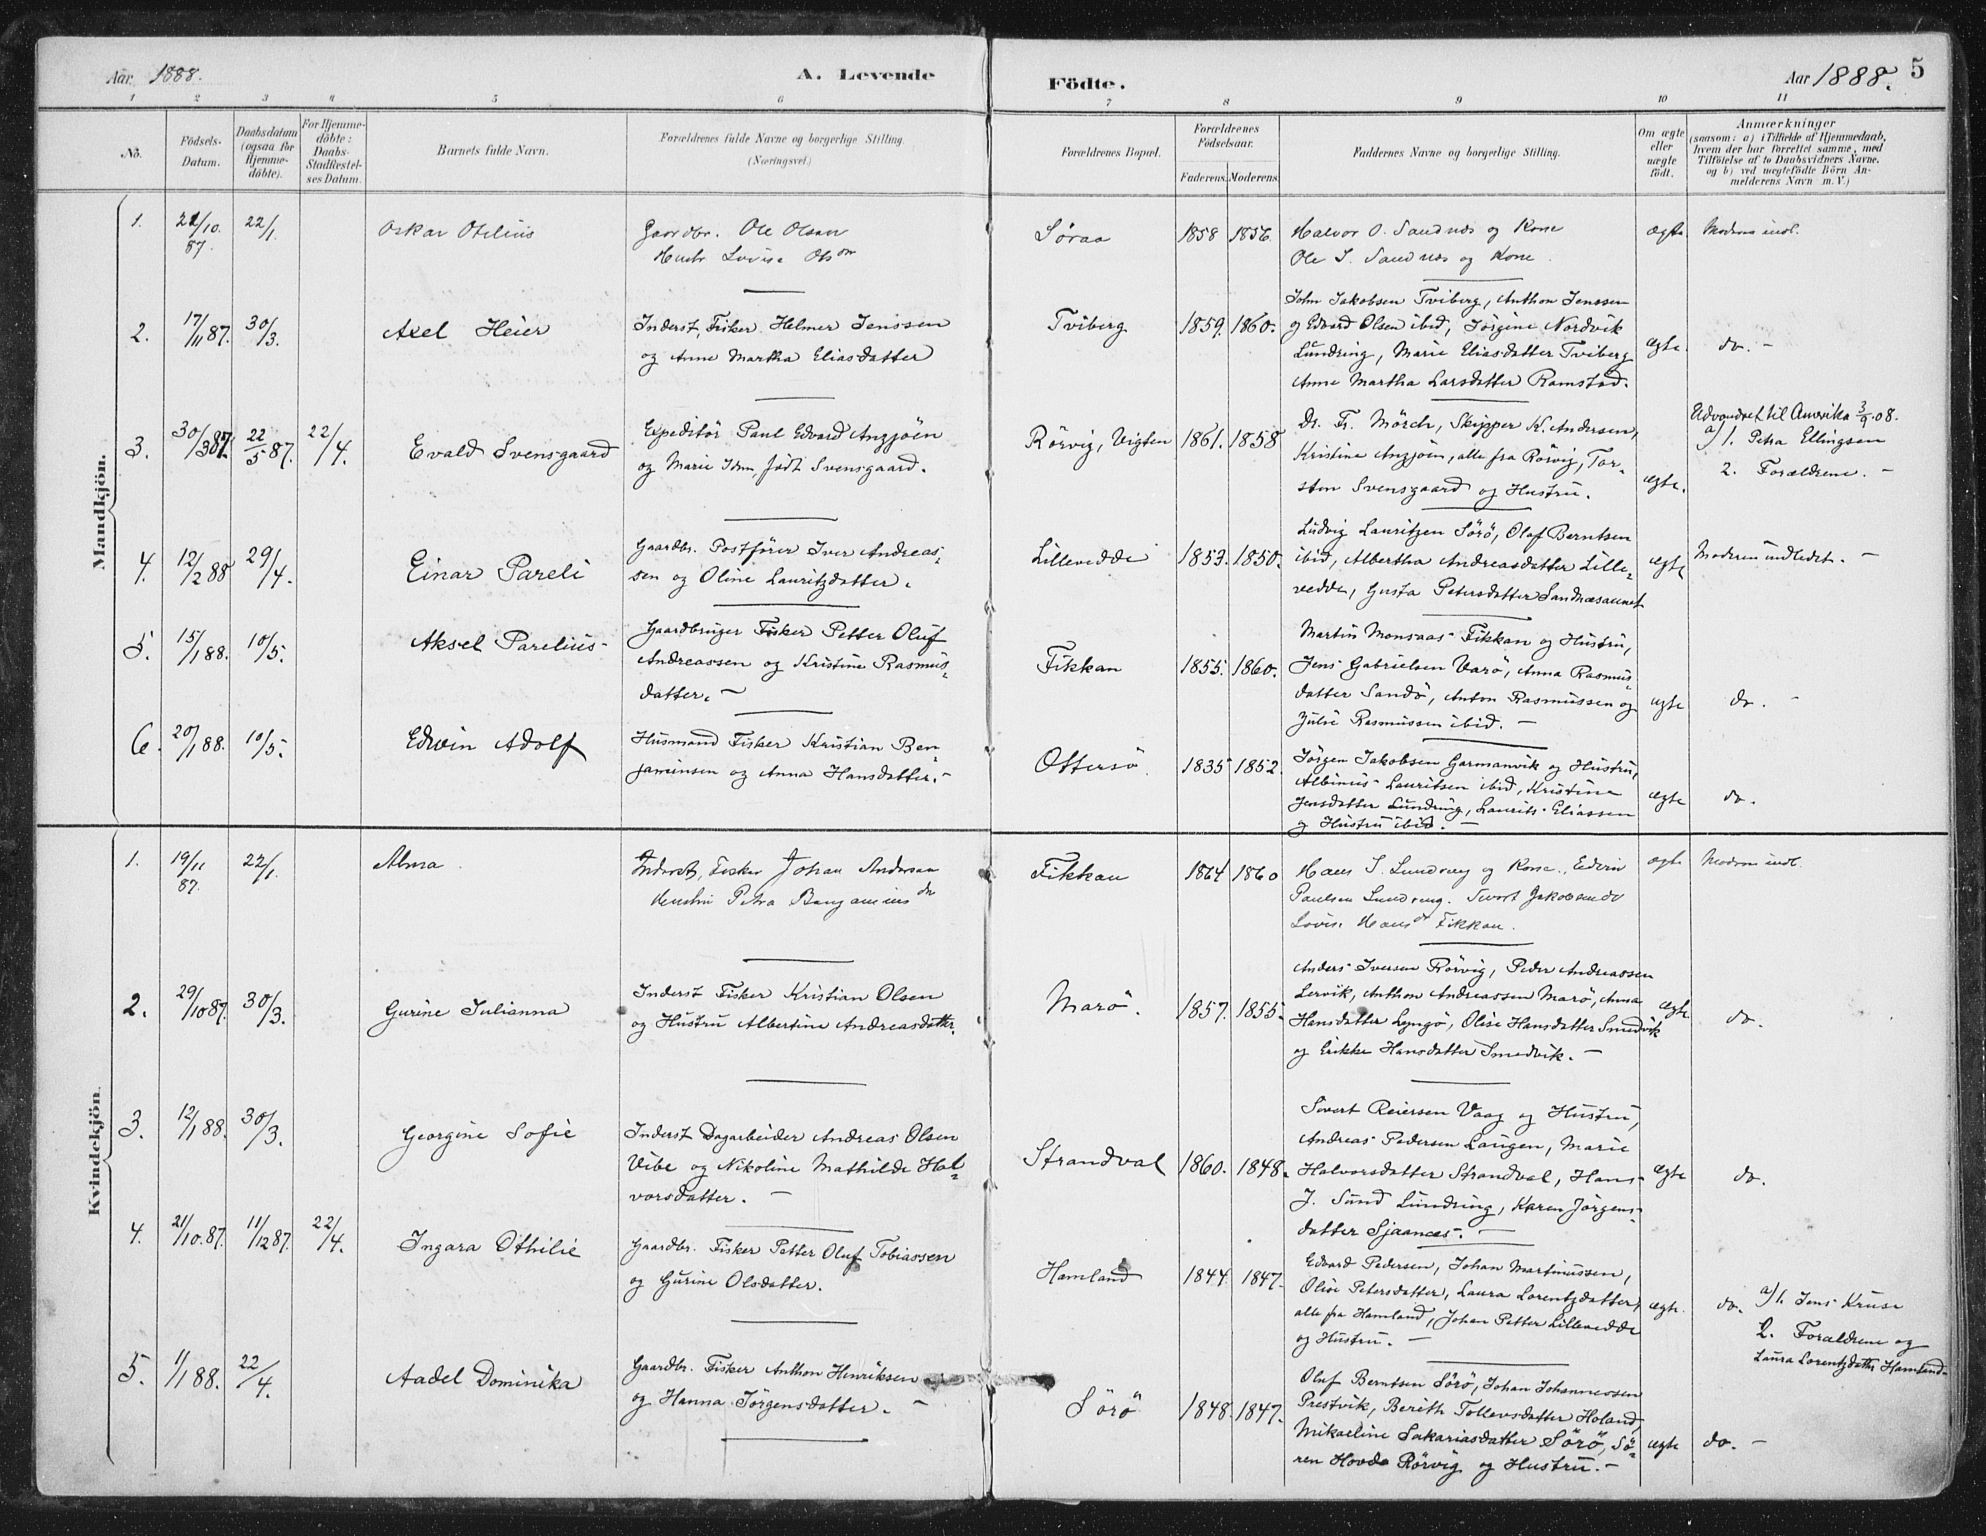 Aar 1888. A. Levende
Födte. Aar 1888. 5
1 2 3 4 5 6 7 8 9 10 11
No. Födsels-Datum. Daabsdatum (ogsaa for Hjemme-döbte). For Hjemme-döbte: Daabs-Stadfæstel-ses Datum. Barnets fulde Navn. Forældrenes fulde Navne og borgerlige Stilling. (Næringsvei.)
Forældrenes Bopæl. Forældrenes Födselsaar. Faderens. Moderens. Faddernes Navne og borgerlige Stilling. Om ægte eller uægte födt. Anmærkninger
(saasom: a) i Tilfælde af Hjemmedaab,
hvem der har forrettet samme, med
Tilföielse af to Daabsvidners Navne.
og b) ved uægtefödte Börn An-
melderens Navn m. V.)
Mandkjön.
1. 21/10 87. 22/1. Oskar Otilius Gaardbr. Ole Olsen
Hustr. Lovise Ols
Söraa 1858 1856. Halvor O. Sandnes og Kone
Ole J. Sandnes og Kone.
ægte Moderen indl.
2. 17/11 87. 30/3. Axel Heier Inderst, Fisker Helmer Jenssen
og Anne Martha Eliasdatter
Tviberg 1859. 1860. John Jakobsen Tviberg, Anthon Jenssen
og Edvard Olsen ibid, Jörgine Nordvik
Lundring, Marie Eliasdatter Tviberg
Anne Martha Larsdatter Ramstad.
ægte. do. -
3. 30/3 87. 22/5 87. 22/4. Evald Svensgaard Expeditör Paul Edvard Anzjöen
og Marie Idm, födt Svensgaard.
Rörvig, Vigten 1861. 1858 Dr. Fr. Mörch, Skipper K. Andersen,
Kristine Anzjöen, alle fra Rörvig, Tor-
sten Svensgaard og Hustru.
ægte. Udvandret til Amerika 3/9 08.
a) 1. Petra Ellingsen
2. Forældrene. -
4. 12/2 88 29/4. Einar Pareli Gaardbr. Postförer Iver Andreas-
sen og Oline Lauritzdatter.
Lillevedde 1853. 1850. Ludvig Lauritzen Sörö, Olaf Berntsen
ibid, Albertha Andreasdatter Lille-
vedde, Gusta Petersdatter Sandnæsaunet
ægte Moderen indledet. -
5. 15/1 88. 10/5. Aksel Parelius- Gaardbruger Fisker Petter Oluf
Andreassen og Kristine Rasmus-
datter. -
Fikkan 1855. 1860. Martin Monsaas- Fikkan og Hustru,
Jens Gabrielsen Varö, Anna Rasmus-
datter Sandö, Anton Rasmussen og
Julie Rasmussen ibid. -
ægte do. -
6. 20/1 88. 10/5. Edwin Adolf Husmand Fisker Kristian Ben-
jaminsen og Anna Hansdatter. -
Ottersö. 1835 1852. Jörgen Jakobsen Garmanvik og Hustru,
Albinus Lauritsen ibid, Kristine
Jensdatter Lundring, Laurits Eliassen
og Hustru ibid. -
ægte do.
Kvindekjön.
1. 19/11 87. 22/1. Alma. Inderst, Fisker Johan Andersen
Hustru Petra Benjamins dr
Fikkan 1864 1860 Hans J. Lundring og Kone., Edvin
Paulsen Lundring. Sivert Jakobsen do
Lovise Hans dr Fikkan.
ægte Moderen indl.
2. 29/10 87. 30/3. Gurine Julianna Inderst Fisker Kristian Olsen
og Hustru Albertine Andreasdatter.
Marö. 1857. 1855. Anders Iversen Rörvig, Peder Andreassen
Lervik, Anthon Andreassen Marö, Anna
Hansdatter Lyngö, Olise Hansdatter Smedvik
og Erikke Hansdatter Smedvik. -
ægte do.
3. 12/1 88. 30/3. Georgine Sofie Inderst Dagarbeider Andreas Olsen
Vibe og Nikoline Mathilde Hal-
vorsdatter. -
Strandval 1860. 1848. Sivert Reiersen Vaag og Hustru,
Andreas Pedersen Laugen, Marie
Halvorsdatter Strandval, Hans-
J. Sund Lundring, Karen Jörgens-
datter Sjaanæs. -
ægte do.
4. 21/10. 87. 11/12 87. 22/4. Ingara Othilie Gaardbr. Fisker Petter Oluf Tobiassen
og Gurine Olsdatter.
Hamland 1844. 1847. Edvard Pedersen, Johan Martinussen,
Olise Petersdatter, Laura Lorentzdatter,
alle fra Hamland, Johan Petter Lillevedde
og Hustru. -
ægte. do. a) 1. Jens Kruse
2. Forældrene og
Laura Lorentzdatter Hamland-
5. 1/1 88. 22/4. Aadel Dominika Gaardbr. Fisker Anthon Henriksen
og Hanna Jörgensdatter. -
Sörö 1848. 1847. Oluf Berntsen Sörö, Johan Johannessen
Prestvik, Berith Tollevsdatter Holand,
Mikaeline Sakariasdatter Sörö, Sö-
ren Hovde Rörvig og Hustru. -
ægte do. -